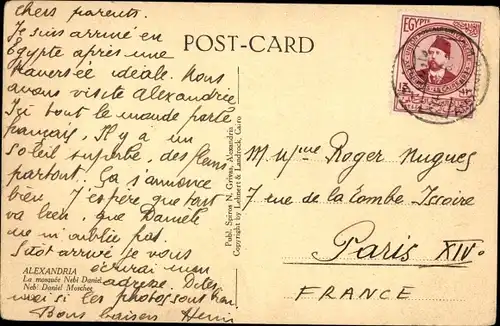 Chers parents.
Je suis arrivé en
Egypte après une
traversée idéale. Nous
avons visité Alexandrie
Ici tout le monde parle
français. Il y a un
soleil superbe, des fleurs
partout. Ça s'annonce
bien. J'espère que tout
va bien, que Danièle
ne m'oublie pas.
Sitôt arrivé je vous
écrirai mon
adresse. Dites
moi si les photos sont bon.
Bons baisers Henri
ALEXANDRIA
La mosquée Nebi Daniel
Nebi Daniel Moschee
POST-CARD
Publ. Spiros N. Grivas, Alexandria
Copyright by Lehnert & Landrock, Cairo
EGYPTE
M. Mme Roger Hugues
7 rue de la Tombe Issoire
Paris XIVo
FRANCE